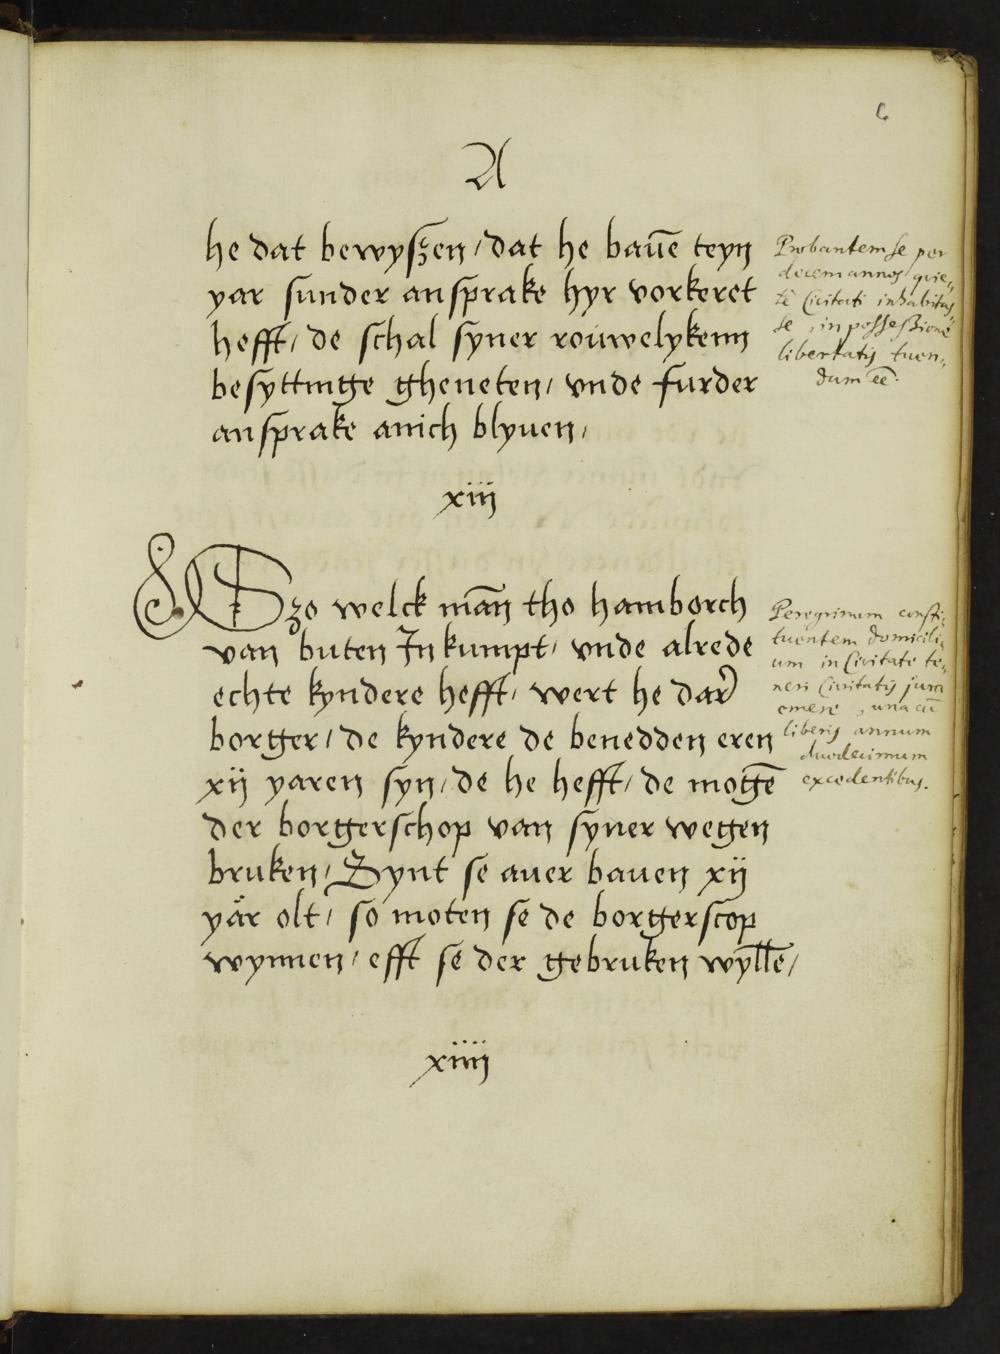 6
A
he dat bewyszen / dat he bauē teyn
yar sunder ansprake hyr vorkeret
hefft / de schal syner rouwelykenn
besyttinge gheneten / vnde furder
ansprake anich blyuen /
Probantem se per
decem annos quie=
tē Civitati inhabitas=
se, in possessionē
libertatis tuen=
dum eē.
xiij
Szo welck mān tho hamborch
van buten Jn kumpt / vnde alrede
echte kyndere hefft / wert he dar
borger / de kyndere de benedden eren
xij yaren syn / de he hefft / de mogē
der borgerschop van syner wegen
bruken / Synt se auer bauen xij
yår olt / so moten se de borgerscop
wynnen / efft se der gebruken wyllē /
Peregrinum consti=
tuentem domicili=
um in Civitate te=
neri Civitatis jura
emere, una cū
liberis annum
duodecimum
excedentibus.
xiiij